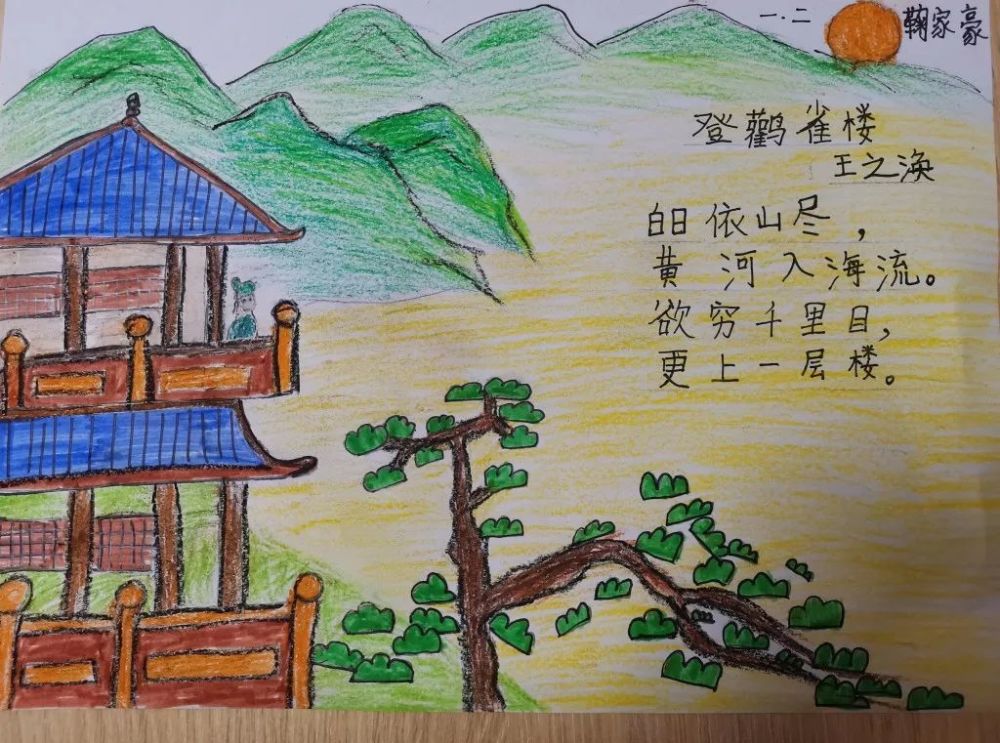 一.二
鞠家豪
登鸛雀楼
王之涣
白日依山尽，
黄河入海流。
欲穷千里目，
更上一层楼。